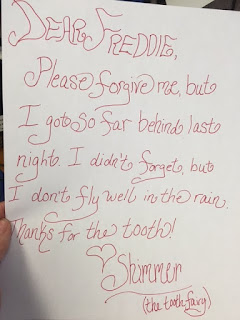 DEAR FREDDIE,
Please forgive me, but
I got so far behind last
night. I didn't forget, but
I don't fly well in the rain.
Thanks for the tooth!
Shimmer
(the tooth fairy)